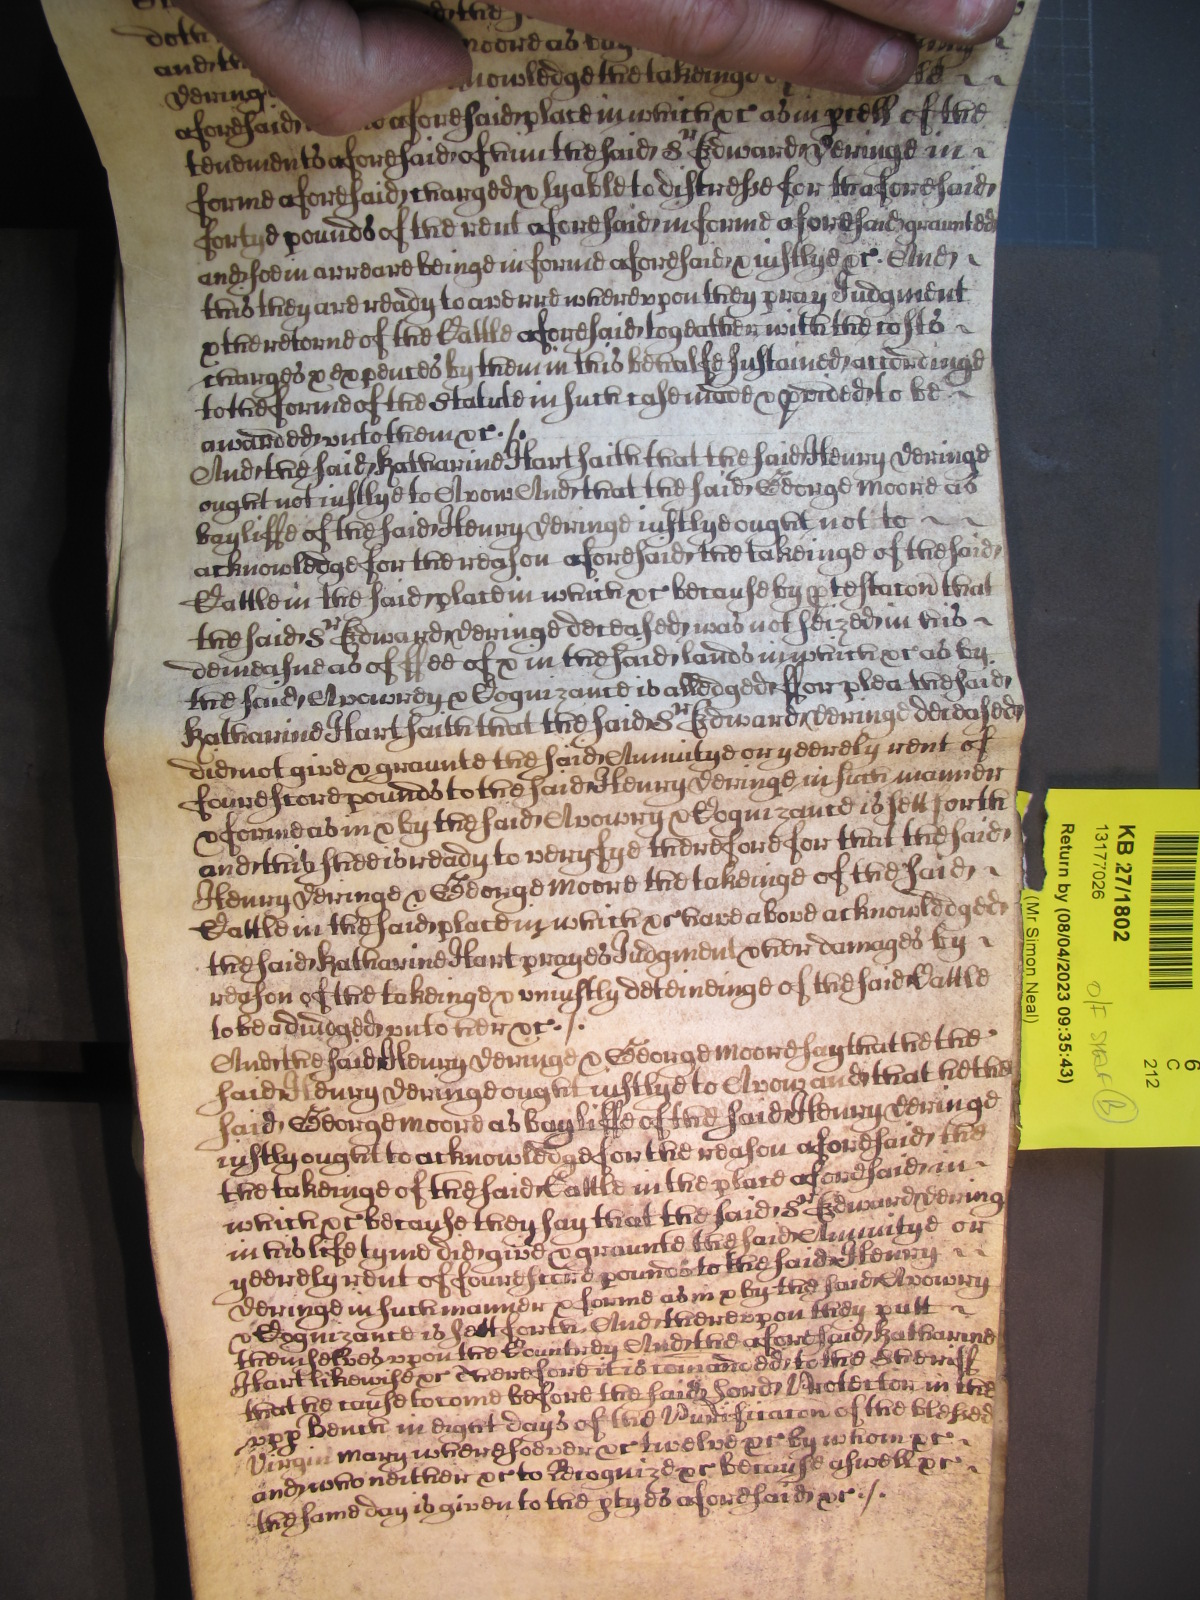 doth moore as bay
and the knowledge the takeinge
Deringe
aforesaid aforesaid place in which &c as in p̱cell of the
tenements aforesaid of him the said Sr Edward Deringe in
forme aforesaid charged & lyable to distresse for thaforesaid
fortye pounds of the rent aforesaid in forme aforesaid graunted
and soe in arreare beinge in forme aforesaid & iustlye &c. And
this they are ready to averre whereupon they pray Judgment
& the retorne of the Cattle aforesaid togeather with the costs
charges & expences by them in this behalfe sustained accordinge
to the forme of the Statute in such case made & p̱vided to be
awarded unto them &c./.
And the said Katharine Hart saith that the said Henry Deringe
ought not iustlye to Avow And that the said George Moore as
bayliffe of the said Henry Deringe iustlye ought not to
acknowledge for the reason aforesaid the takeinge of the said
Cattle in the said place in which &c because by p̱testacon that
the said Sr Edward Deringe deceased was not seized in his
demeasne as of ffee of & in the said lands in which &c as by
the said Avowrey & Cognizance is alledged ffor plea the said
Katharine Hart saith that the said Sr Edward Deringe deceased
did not give & graunte the said Annuitye or yeerely rent of
fourescore pounds to the said Henry Deringe in such manner
& forme as in & by the said Avowry & Cognizance is sett forth
and this shee is ready to verifye therefore for that the said
Henry Deringe & George Moore the takeinge of the said
Cattle in the said place in which &c have above acknowledged
the said Katharine Hart prayes Judgment & her damages by
reason of the takeinge & uniustly deteineinge of the said Cattle
to be adiudged unto her &c./.
And the said Henry Deringe & George Moore say that he the
said Henry Deringe ought iustlye to Avow and that he the
said George Moore as bayliffe of the said Henry Deringe
iustly ought to acknowledge for the reason aforesaid the
the takeinge of the said Cattle in the place aforesaid in
which &c because they say that the said Sr Edward Dering
in his life tyme did give & graunte the said Annuitye or
yeerely rent of fourescore pounds to the said Henry
Deringe in such manner & forme as in & by the said Avowry
& Cognizance is sett forth And thereupon they putt
themselves upon the Countrey And the aforesaid Katharine
Hart likewise &c Therefore it is comanded to the Sheriff
that he cause to come before the said Lord Protector in the
upp Bench in eight days of the Purificacon of the blessed
Virgin Mary wheresoever &c twelve &c by whom &c
and who neither &c to Recognize &c because aswell &c
the same day is given to the p̱tyes aforesaid &c./.
6
C
212
KB 27/1802
13177026
O/F SHELF B
Return by (08/04/2023 09:35:43)
(Mr Simon Neal)